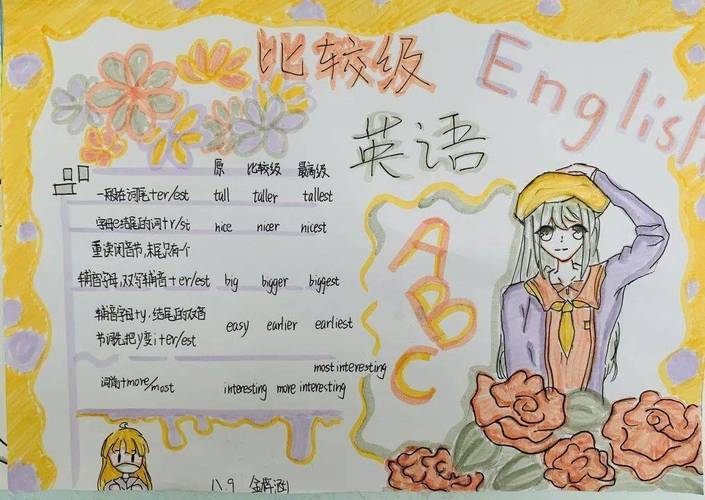 比较级
English
英语
原 比较级 最高级
一般在词尾+er/est tall taller tallest
字母e结尾的词+r/st nice nicer nicest
重读闭音节,末尾只有一个
辅音字母,双写辅音+er/est big bigger biggest
辅音字母+y,结尾的双音
节词先把y变i+er/est
easy earlier earliest
most interesting
词前+more/most interesting more interesting
A
B
C